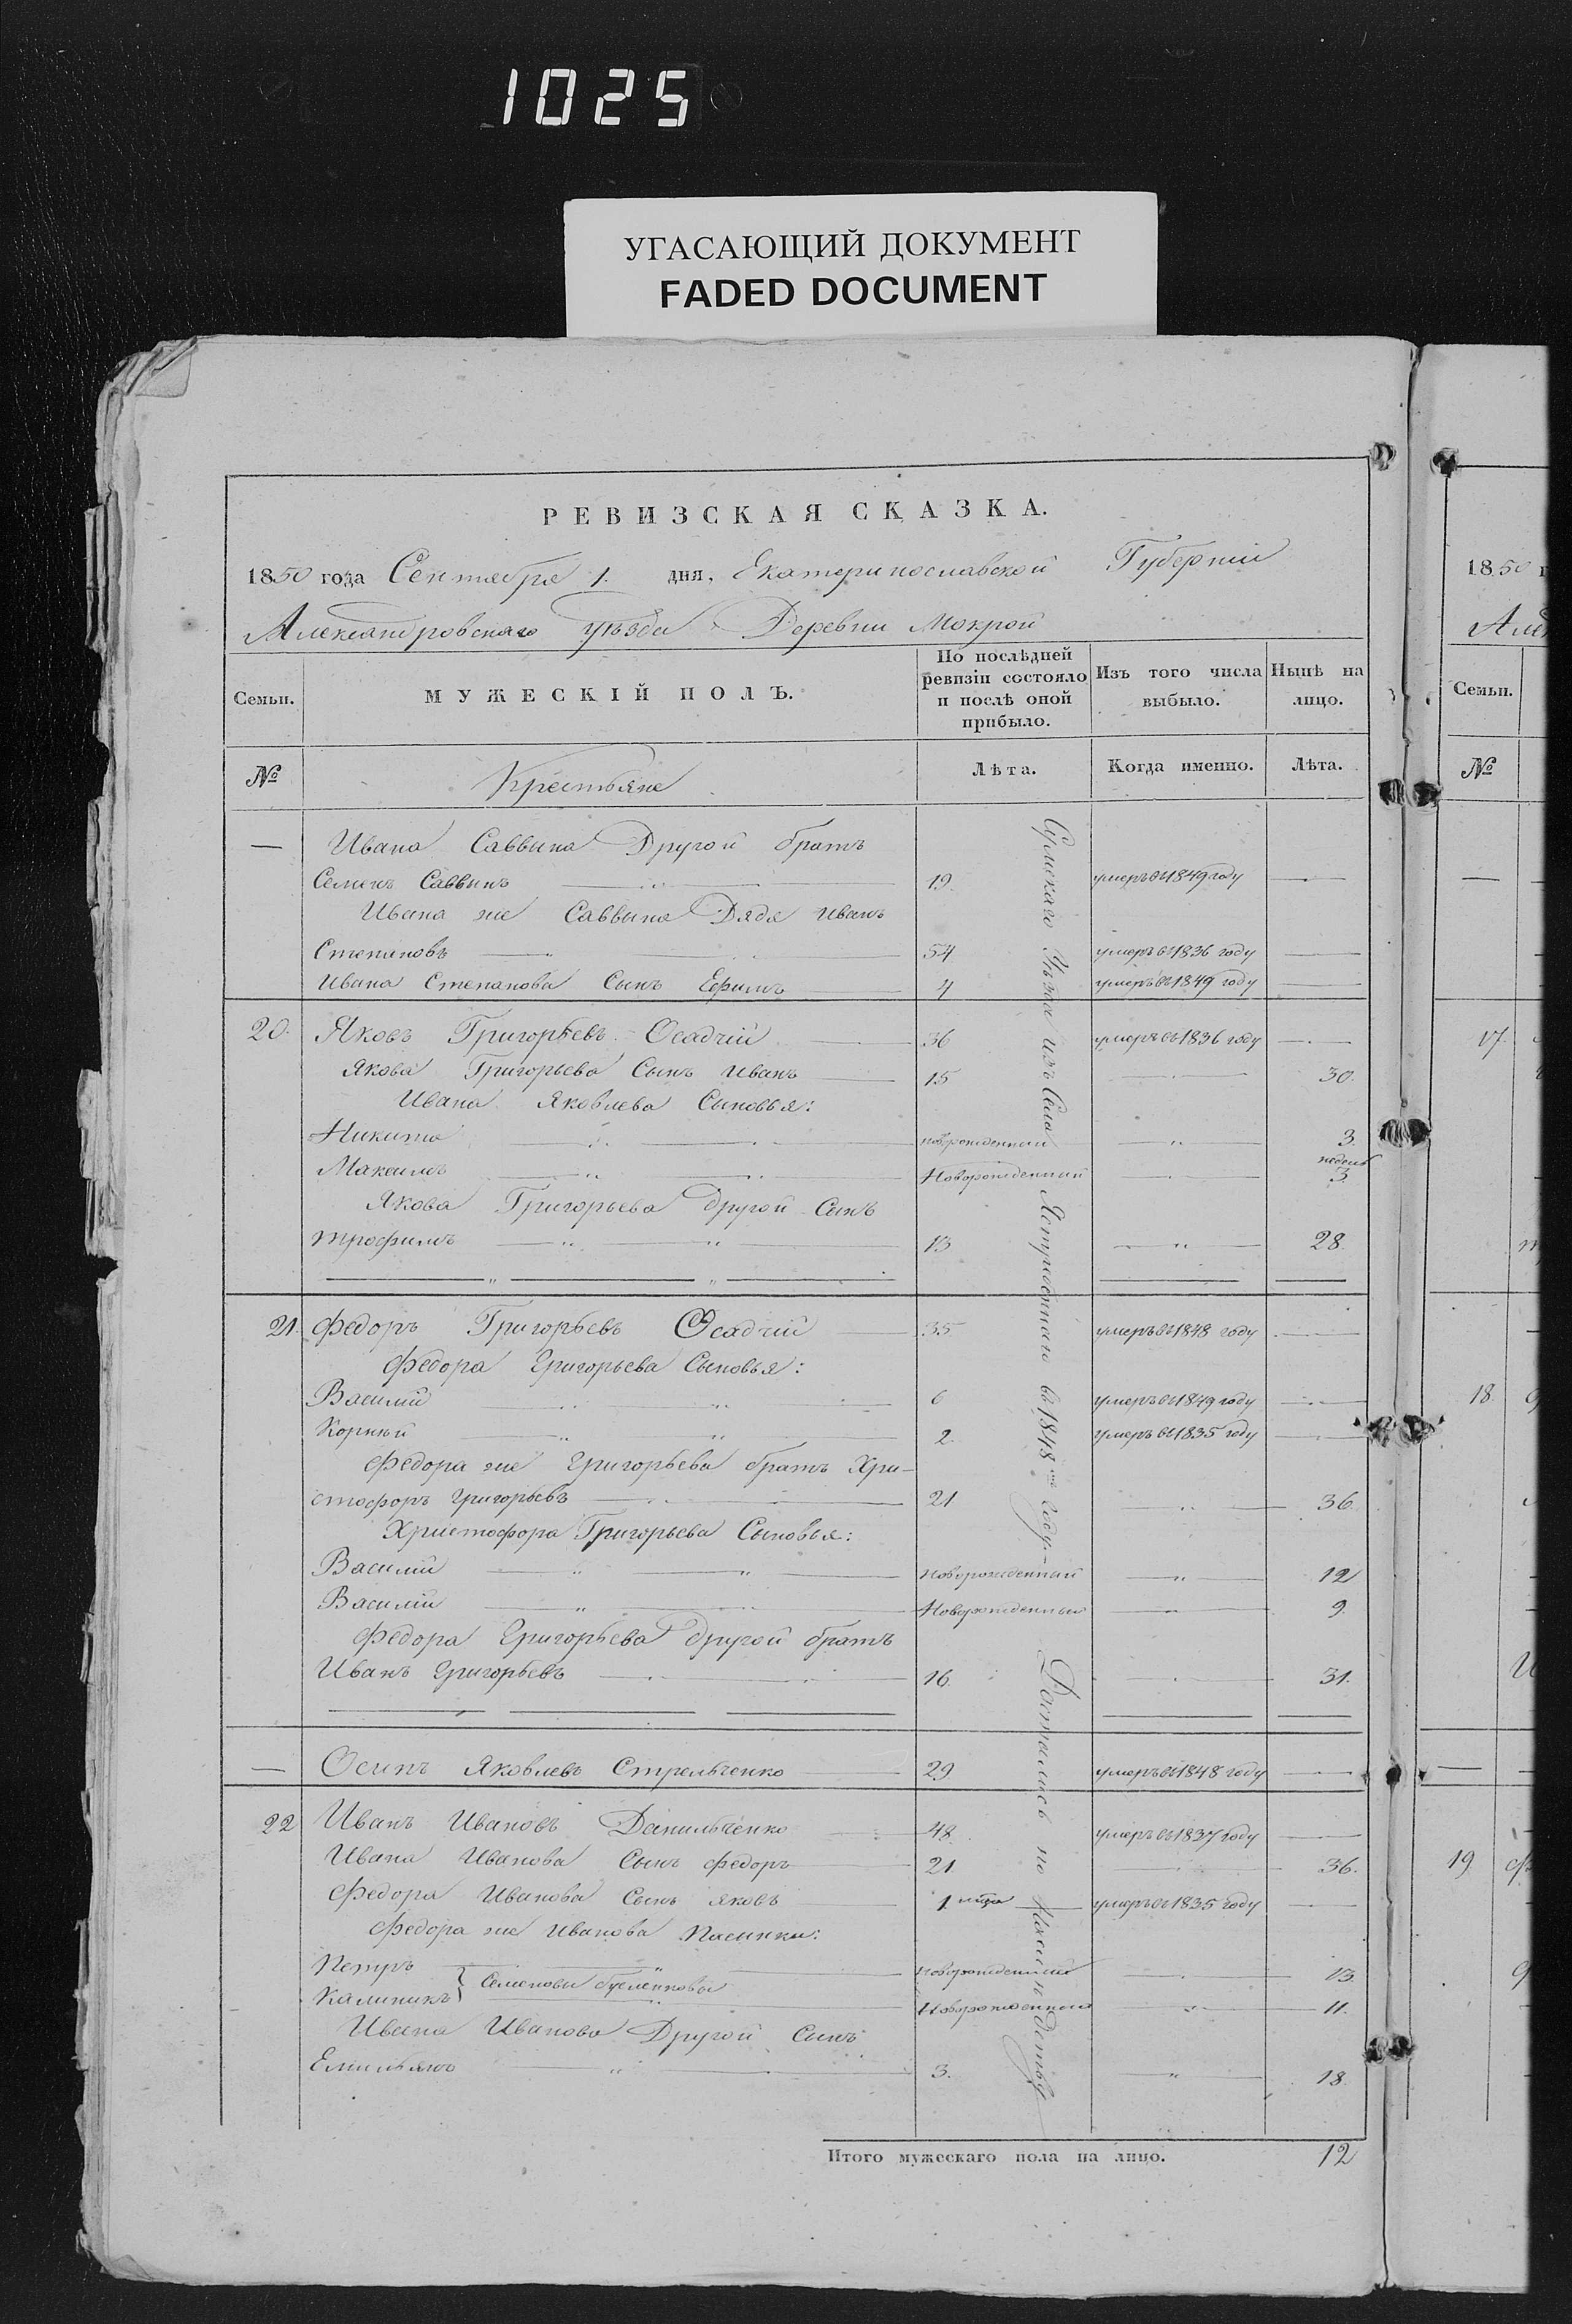 1025
УГАСАЮЩИЙ ДОКУМЕНТ
FADED DOCUMENT
РЕВИЗСКАЯ СКАЗКА.
1850 года Сентября 1. дня, Екатеринославской Губерніи
Александровскаго уѣзда Деревни Мокрой
Семьи.
МУЖЕСКІЙ ПОЛЪ.
По послѣдней ревизіи состояло и послѣ оной прибыло.
Изъ того числа выбыло.
Нынѣ на лицо.
№ Крестьяне Лѣта. Когда именно. Лѣта.
— Ивана Саввина Другой братъ
Семенъ Саввинъ 19. умеръ въ 1849 году —
Ивана же Саввина Дядя Иванъ
Степановъ 54 умеръ въ 1836 году —
Ивана Степанова Сынъ Ефимъ 4 умеръ въ 1849 году —
20. Яковъ Григорьевъ Осадчій 36 умеръ въ 1836 году —
Якова Григорьева Сынъ Иванъ 15 — 30.
Ивана Яковлева Сыновья:
Никита новорожденный „ 3.
Максимъ Новорожденный — недель 3
Якова Григорьева Другой Сынъ
Трофимъ 13 „ 28.
21. Федоръ Григорьевъ Осадчій 35 умеръ въ 1848 году —
Федора Григорьева Сыновья:
Василій 6 умеръ въ 1849 году —
Корнѣй 2. умеръ въ 1835 году —
Федора же Григорьева братъ Хри-
стофоръ Григорьевъ 21 „ 36.
Христофора Григорьева Сыновья:
Василій новорожденный „ 12
Василій Новорожденный „ 9.
Федора Григорьева Другой братъ
Иванъ Григорьевъ 16. — 31.
— Осипъ Яковлевъ Стрельченко 29 умеръ въ 1848 году —
22 Иванъ Ивановъ Данильченко 48. умеръ въ 1837 году —
Ивана Иванова Сынъ Федоръ 21. — 36.
Федора Иванова Сынъ Яковъ 1 умеръ въ 1835 году —
Федора же Иванова Пасынки:
Петръ новорожденный — 13.
Калиникъ } Семеновы Новорожденной „ 11.
Ивана Иванова Другой Сынъ
Емильянъ 3. „ 18.
уѣзда изъ Села въ 1848 году. Достались по
Итого мужескаго пола на лицо. 12
1850
Семьи.
№
17.
18
19